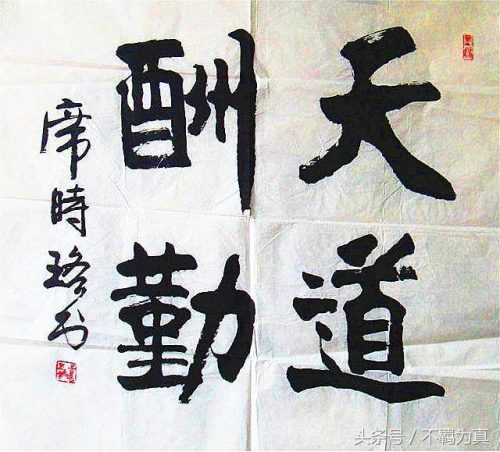 天道
酬勤
席時珞书
头条号 / 不羁为真